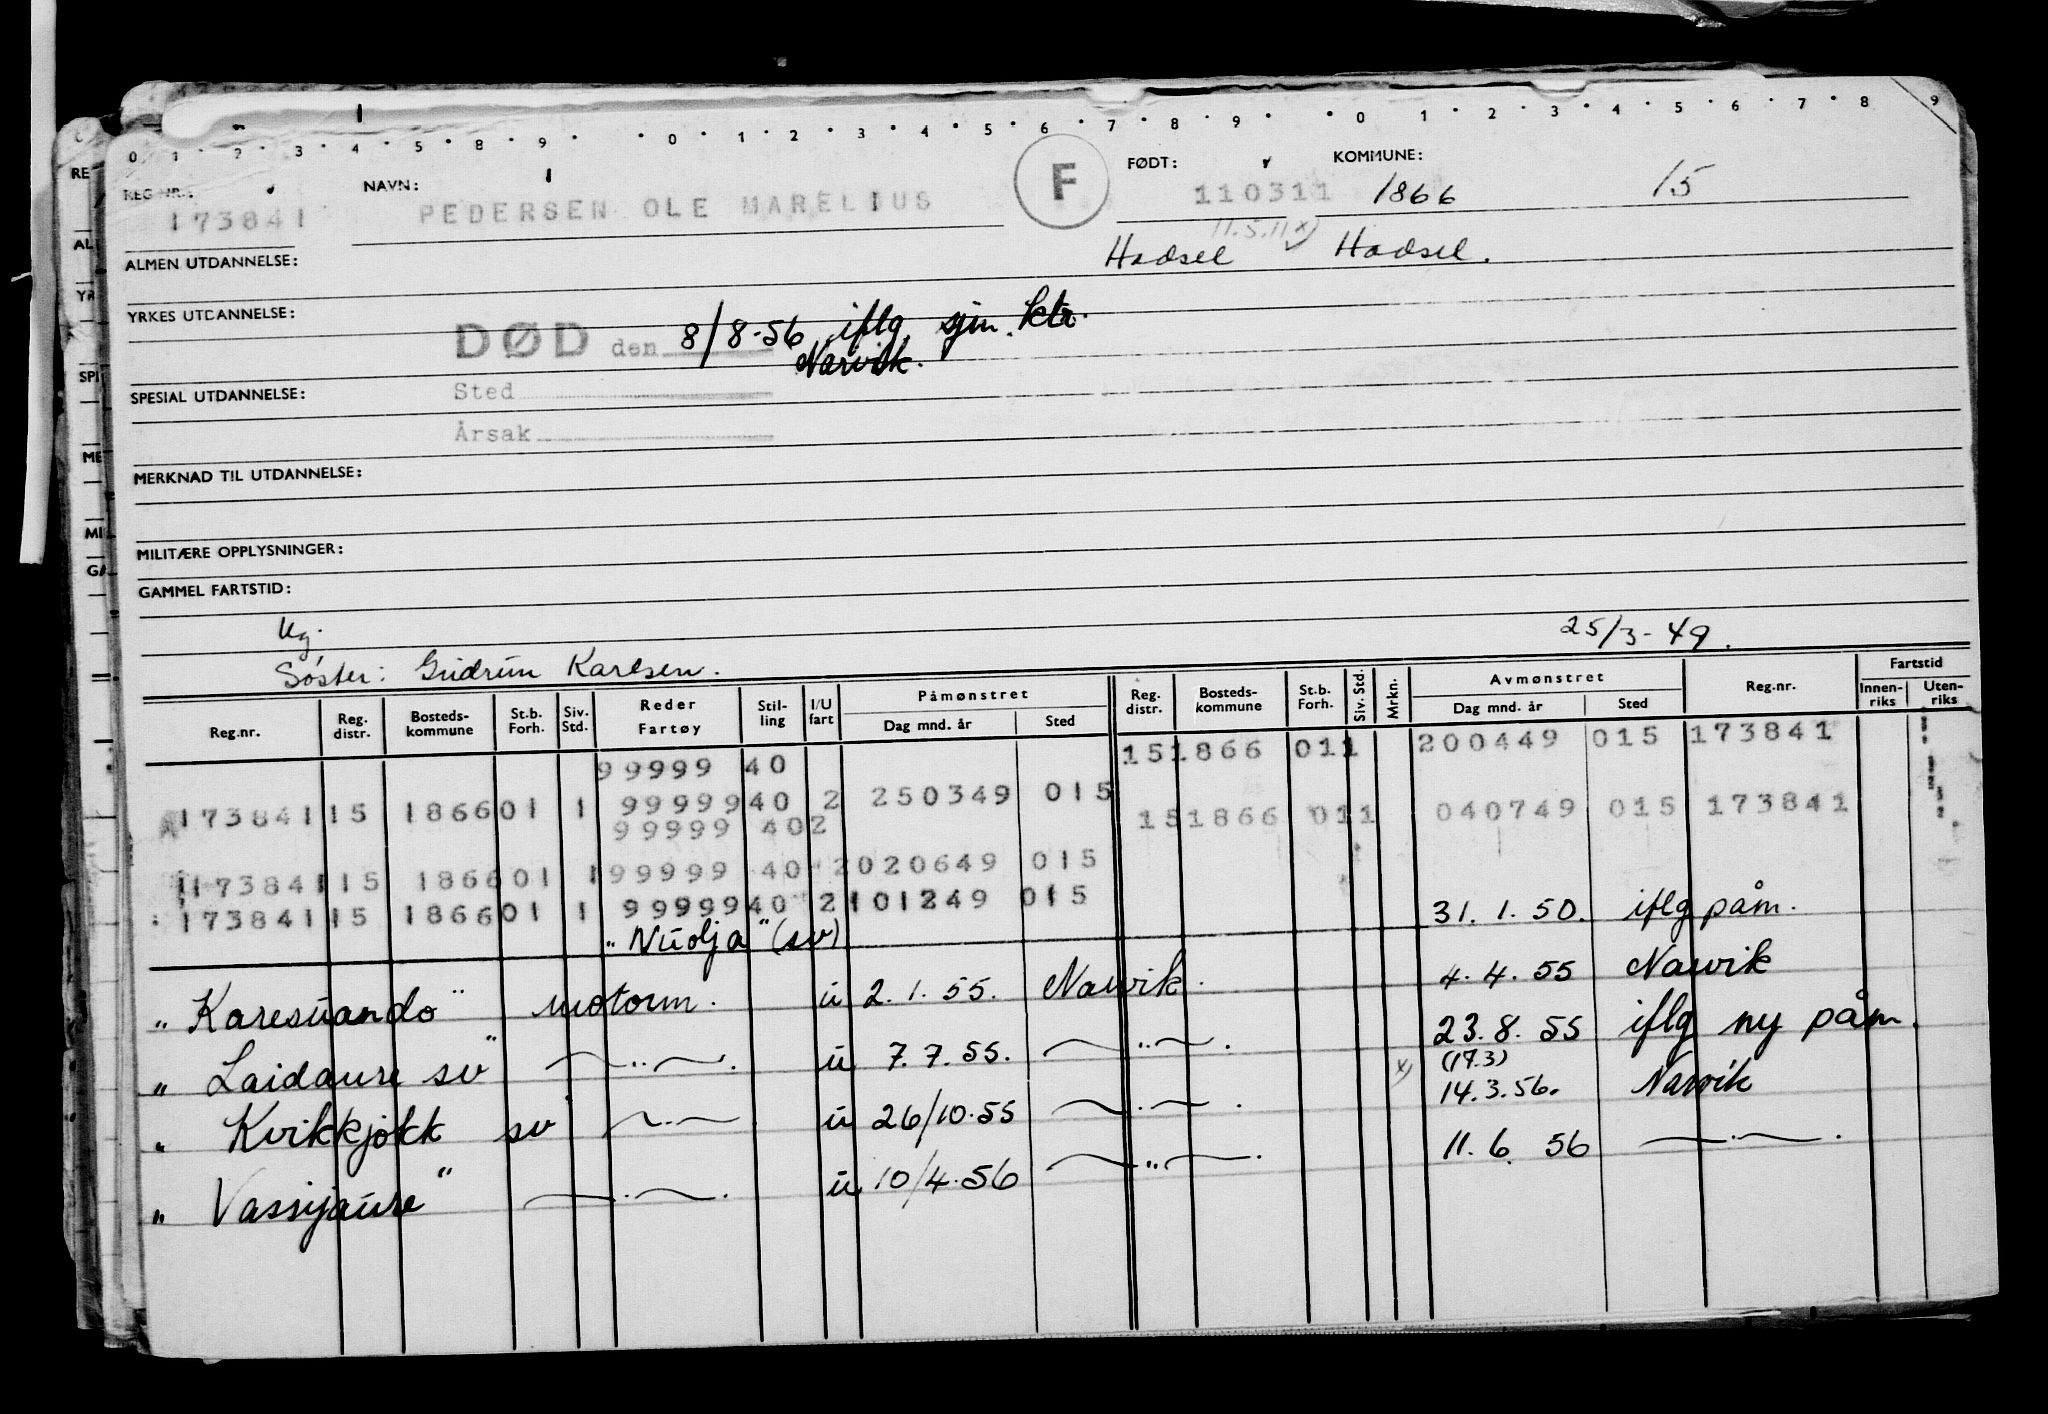 0 1 2 3 4 5 8 9 0 1 2 3 4 5 6 7 8 9 0 1 2 3 4 5 6 7 8 9
REG NR.: NAVN: F FØDT: KOMMUNE:
173841 PEDERSEN OLE MARELIUS 110311 1866 15
11.5.11 x)
ALMEN UTDANNELSE: Hadsel Hadsel.
YRKES UTDANNELSE:
DØD den 8/8-56 iflg. sjm. ktr.
Narvik.
SPESIAL UTDANNELSE: Sted
Årsak
MERKNAD TIL UTDANNELSE:
MILITÆRE OPPLYSNINGER:
GAMMEL FARTSTID:
Ug. 25/3-49.
Søster: Gudrun Karlsen.
Reg.nr. Reg. distr. Bosteds-kommune St.b. Forh. Siv. Std. Reder Fartøy Stil-ling I/U fart Påmønstret Dag mnd. år Sted Reg. distr. Bosteds-kommune St.b. Forh. Siv. Std. Mrkn. Avmønstret Dag mnd. år Sted Reg.nr. Fartstid Innen-riks Uten-riks
99999 40 151866 011 200449 015 173841
173841 15 1866 01 1 99999 40 2 250349 015
99999 40 2 151866 011 040749 015 173841
173841 15 1866 01 1 99999 40 2 020649 015
173841 15 1866 01 1 99999 40 2 101249 015 31.1.50. iflg påm.
"Nuolja" (sv)
"Karesuando" motorm. u 2.1.55. Narvik. 4.4.55 Narvik
"Laidaure sv" —"—. u 7.7.55. —"—. 23.8.55 iflg ny påm.
"Kvikkjokk sv" —"— u 26/10-55 —"—. x) (17.3) 14.3.56. Narvik
"Vassijaure" —"—. u 10/4-56 —"—. 11.6.56 —"—.